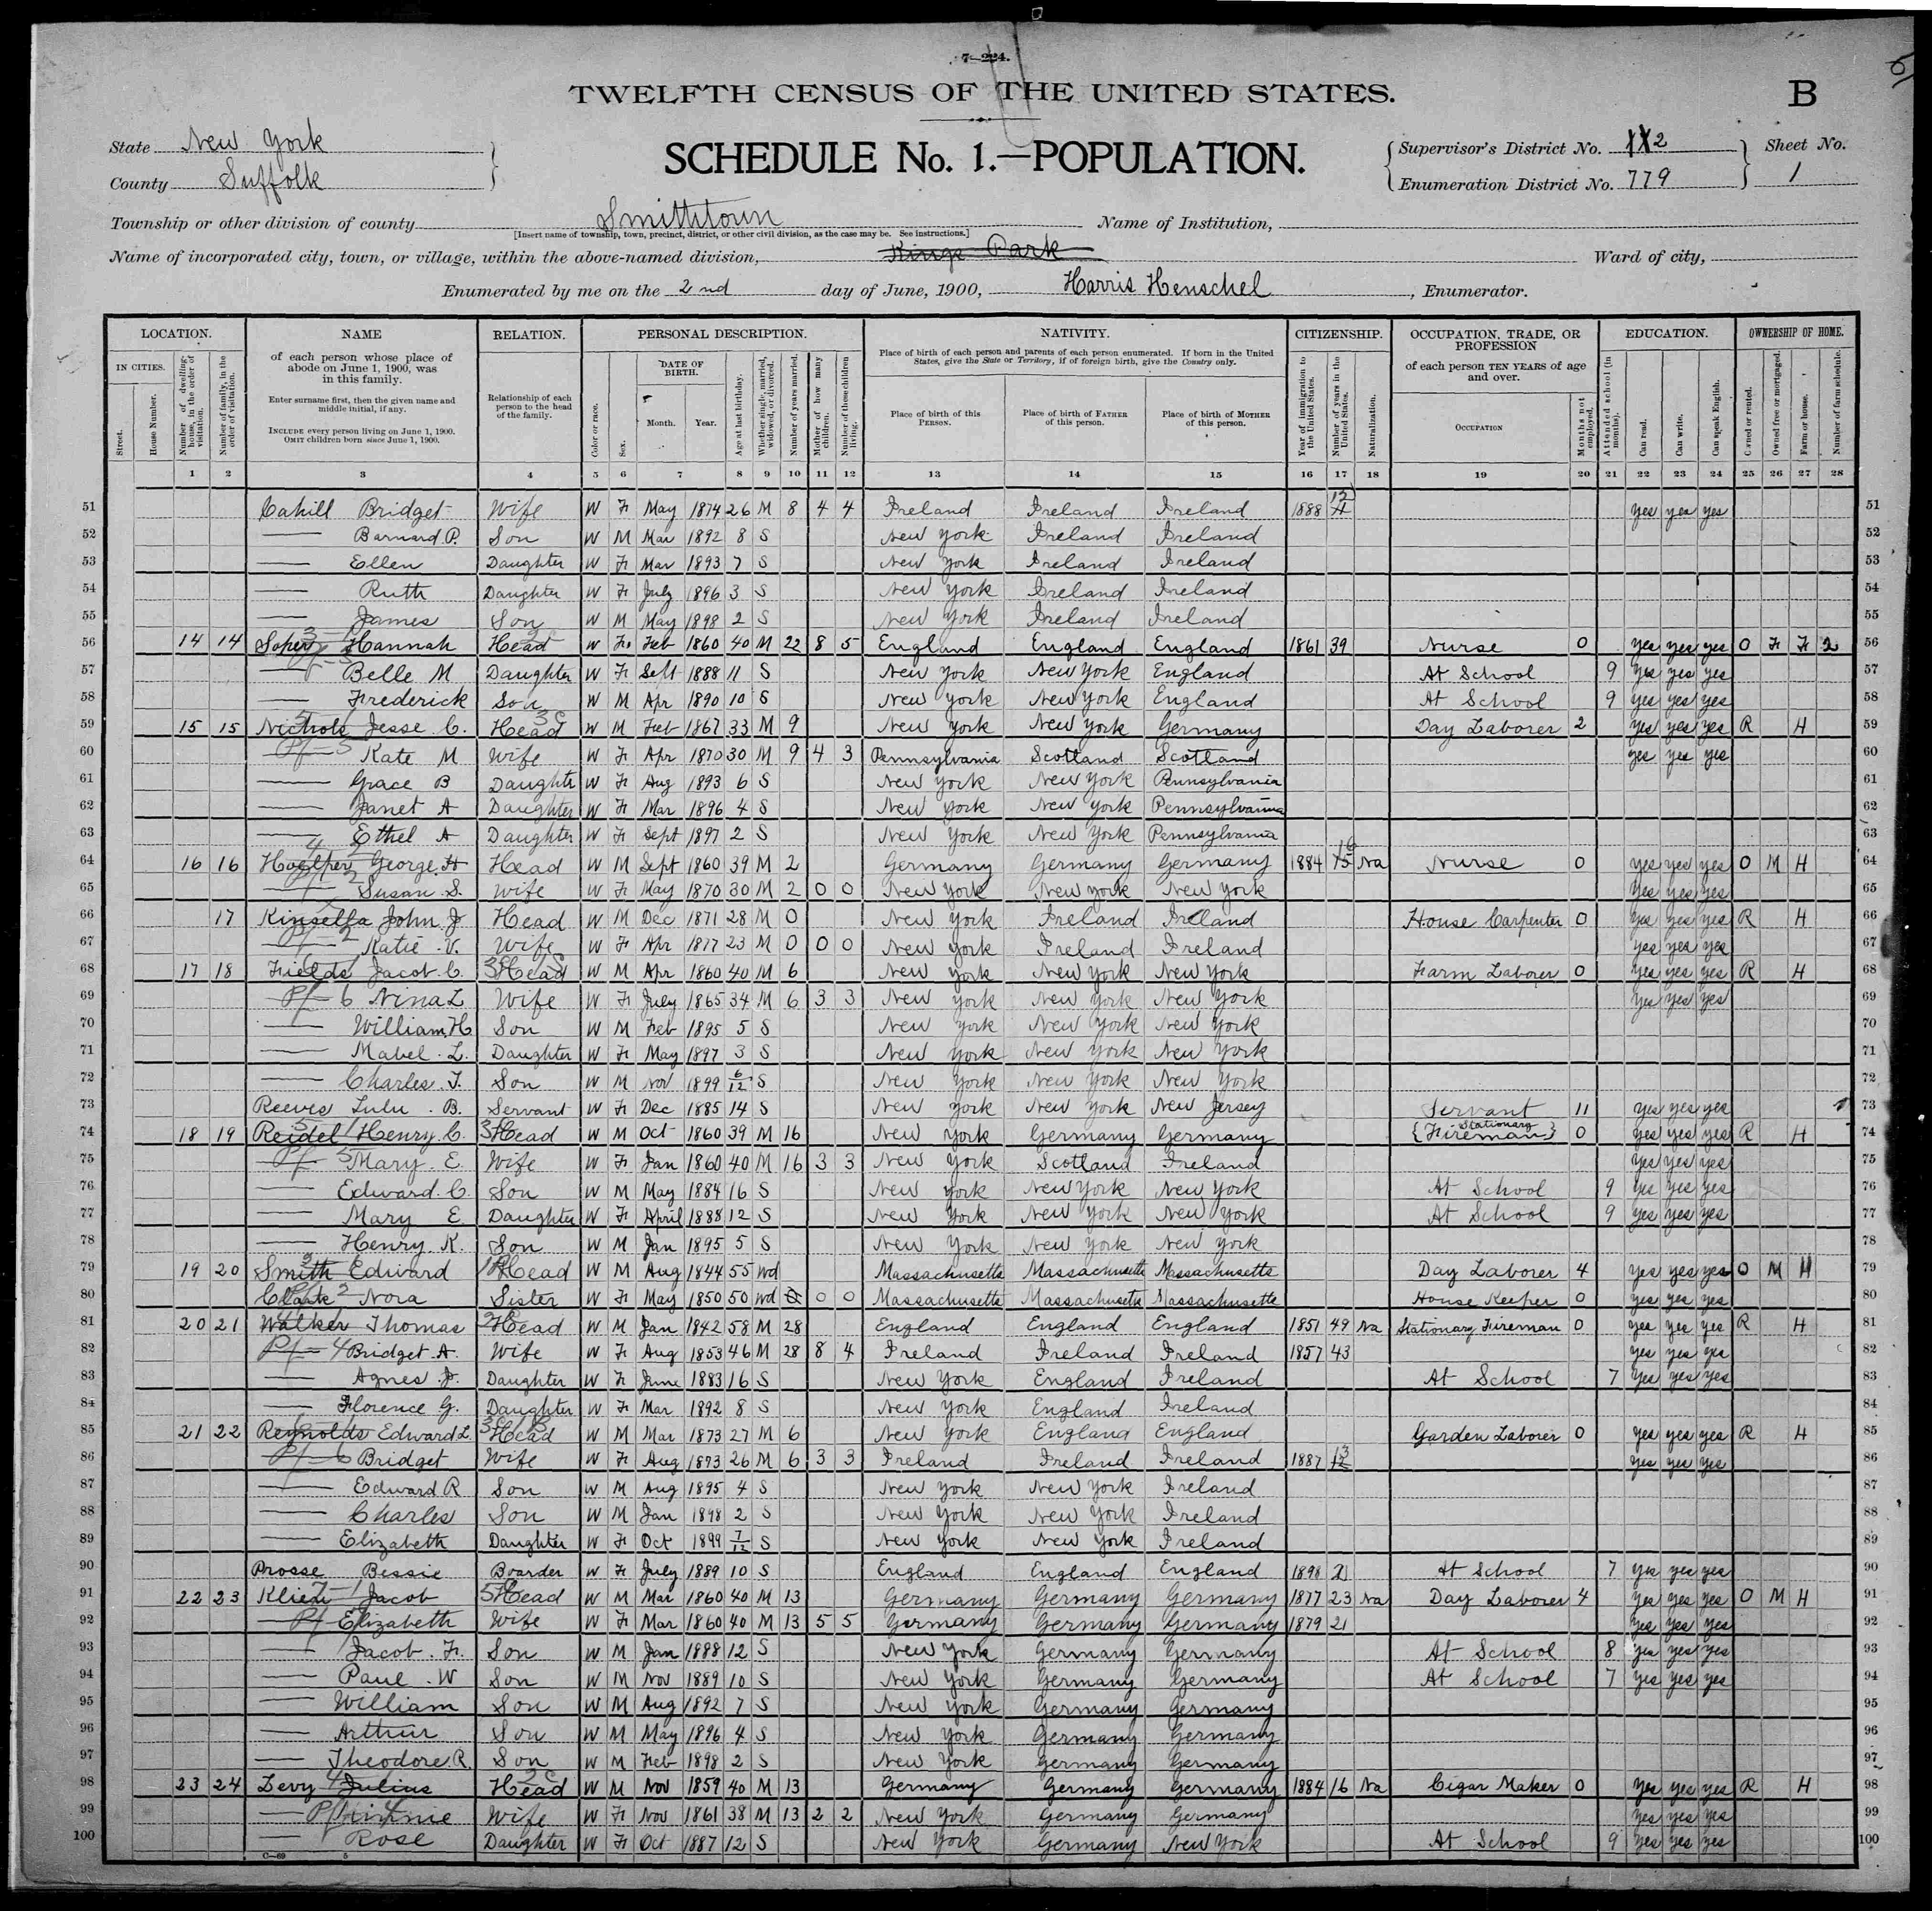 7-224.
TWELFTH CENSUS OF THE UNITED STATES.
B
State New York
County Suffolk
SCHEDULE No. 1.—POPULATION.
Supervisor's District No. 2
Enumeration District No. 779
Sheet No.
1
Township or other division of county Smithtown Name of Institution,
[Insert name of township, town, precinct, district, or other civil division, as the case may be. See instructions.]
Name of incorporated city, town, or village, within the above-named division, Kings Park Ward of city,
Enumerated by me on the 2nd day of June, 1900, Harris Henschel, Enumerator.
LOCATION. NAME RELATION. PERSONAL DESCRIPTION. NATIVITY. CITIZENSHIP. OCCUPATION, TRADE, OR PROFESSION EDUCATION. OWNERSHIP OF HOME.
IN CITIES. Street. House Number. Number of dwelling-house, in the order of visitation. Number of family, in the order of visitation.
of each person whose place of abode on June 1, 1900, was in this family.
Enter surname first, then the given name and middle initial, if any.
INCLUDE every person living on June 1, 1900. OMIT children born since June 1, 1900.
Relationship of each person to the head of the family.
Color or race. Sex. DATE OF BIRTH. Month. Year. Age at last birthday. Whether single, married, widowed, or divorced. Number of years married. Mother of how many children. Number of these children living.
Place of birth of each person and parents of each person enumerated. If born in the United States, give the State or Territory; if of foreign birth, give the Country only.
Place of birth of this PERSON. Place of birth of FATHER of this person. Place of birth of MOTHER of this person.
Year of immigration to the United States. Number of years in the United States. Naturalization.
of each person TEN YEARS of age and over.
OCCUPATION Months not employed.
Attended school (in months). Can read. Can write. Can speak English.
Owned or rented. Owned free or mortgaged. Farm or house. Number of farm schedule.
1 2 3 4 5 6 7 8 9 10 11 12 13 14 15 16 17 18 19 20 21 22 23 24 25 26 27 28
51 Cahill Bridget Wife W F May 1874 26 M 8 4 4 Ireland Ireland Ireland 1888 12 yes yes yes 51
52 Barnard P. Son W M Mar 1892 8 S New York Ireland Ireland 52
53 Ellen Daughter W F Mar 1893 7 S New York Ireland Ireland 53
54 Ruth Daughter W F July 1896 3 S New York Ireland Ireland 54
55 James Son W M May 1898 2 S New York Ireland Ireland 55
56 14 14 Soper Hannah Head W F Feb 1860 40 M 22 8 5 England England England 1861 39 Nurse 0 yes yes yes O F F 2 56
57 Belle M Daughter W F Sept 1888 11 S New York New York England At School 9 yes yes yes 57
58 Frederick Son W M Apr 1890 10 S New York New York England At School 9 yes yes yes 58
59 15 15 Nichols Jesse C. Head W M Feb 1867 33 M 9 New York New York Germany Day Laborer 2 yes yes yes R H 59
60 Kate M Wife W F Apr 1870 30 M 9 4 3 Pennsylvania Scotland Scotland yes yes yes 60
61 Grace B Daughter W F Aug 1893 6 S New York New York Pennsylvania 61
62 Janet A Daughter W F Mar 1896 4 S New York New York Pennsylvania 62
63 Ethel A Daughter W F Sept 1897 2 S New York New York Pennsylvania 63
64 16 16 George H Head W M Sept 1860 39 M 2 Germany Germany Germany 1884 16 Na Nurse 0 yes yes yes O M H 64
65 Susan S. Wife W F May 1870 30 M 2 0 0 New York New York New York yes yes yes 65
66 17 Kinsella John J Head W M Dec 1871 28 M 0 New York Ireland Ireland House Carpenter 0 yes yes yes R H 66
67 Katie V. Wife W F Apr 1877 23 M 0 0 0 New York Ireland Ireland yes yes yes 67
68 17 18 Fields Jacob C. Head W M Apr 1860 40 M 6 New York New York New York Farm Laborer 0 yes yes yes R H 68
69 Nina L Wife W F July 1865 34 M 6 3 3 New York New York New York yes yes yes 69
70 William H. Son W M Feb 1895 5 S New York New York New York 70
71 Mabel L. Daughter W F May 1897 3 S New York New York New York 71
72 Charles T. Son W M Nov 1899 6/12 S New York New York New York 72
73 Reeves Lulu B. Servant W F Dec 1885 14 S New York New York New Jersey Servant 11 yes yes yes 73
74 18 19 Reidel Henry C. Head W M Oct 1860 39 M 16 New York Germany Germany {Stationary Fireman} 0 yes yes yes R H 74
75 Mary E. Wife W F Jan 1860 40 M 16 3 3 New York Scotland Ireland yes yes yes 75
76 Edward C. Son W M May 1884 16 S New York New York New York At School 9 yes yes yes 76
77 Mary E Daughter W F April 1888 12 S New York New York New York At School 9 yes yes yes 77
78 Henry K. Son W M Jan 1895 5 S New York New York New York 78
79 19 20 Smith Edward Head W M Aug 1844 55 Wd Massachusetts Massachusetts Massachusetts Day Laborer 4 yes yes yes O M H 79
80 Clark Nora Sister W F May 1850 50 Wd 0 0 Massachusetts Massachusetts Massachusetts House Keeper 0 yes yes yes 80
81 20 21 Walker Thomas Head W M Jan 1842 58 M 28 England England England 1851 49 Na Stationary Fireman 0 yes yes yes R H 81
82 Bridget A. Wife W F Aug 1853 46 M 28 8 4 Ireland Ireland Ireland 1857 43 yes yes yes 82
83 Agnes J. Daughter W F June 1883 16 S New York England Ireland At School 7 yes yes yes 83
84 Florence G. Daughter W F Mar 1892 8 S New York England Ireland 84
85 21 22 Reynolds Edward L. Head W M Mar 1873 27 M 6 New York England England Garden Laborer 0 yes yes yes R H 85
86 Bridget Wife W F Aug 1873 26 M 6 3 3 Ireland Ireland Ireland 1887 13 yes yes yes 86
87 Edward R Son W M Aug 1895 4 S New York New York Ireland 87
88 Charles Son W M Jan 1898 2 S New York New York Ireland 88
89 Elizabeth Daughter W F Oct 1899 7/12 S New York New York Ireland 89
90 Prosse Bessie Boarder W F July 1889 10 S England England England 1898 2 At School 7 yes yes yes 90
91 22 23 Jacob Head W M Mar 1860 40 M 13 Germany Germany Germany 1877 23 Na Day Laborer 4 yes yes yes O M H 91
92 Elizabeth Wife W F Mar 1860 40 M 13 5 5 Germany Germany Germany 1879 21 yes yes yes 92
93 Jacob F. Son W M Jan 1888 12 S New York Germany Germany At School 8 yes yes yes 93
94 Paul W Son W M Nov 1889 10 S New York Germany Germany At School 7 yes yes yes 94
95 William Son W M Aug 1892 7 S New York Germany Germany 95
96 Arthur Son W M May 1896 4 S New York Germany Germany 96
97 Theodore R. Son W M Feb 1898 2 S New York Germany Germany 97
98 23 24 Levy Julius Head W M Nov 1859 40 M 13 Germany Germany Germany 1884 16 Na Cigar Maker 0 yes yes yes R H 98
99 Wife W F Nov 1861 38 M 13 2 2 New York Germany Germany yes yes yes 99
100 Rose Daughter W F Oct 1887 12 S New York Germany New York At School 9 yes yes yes 100
C-69 5